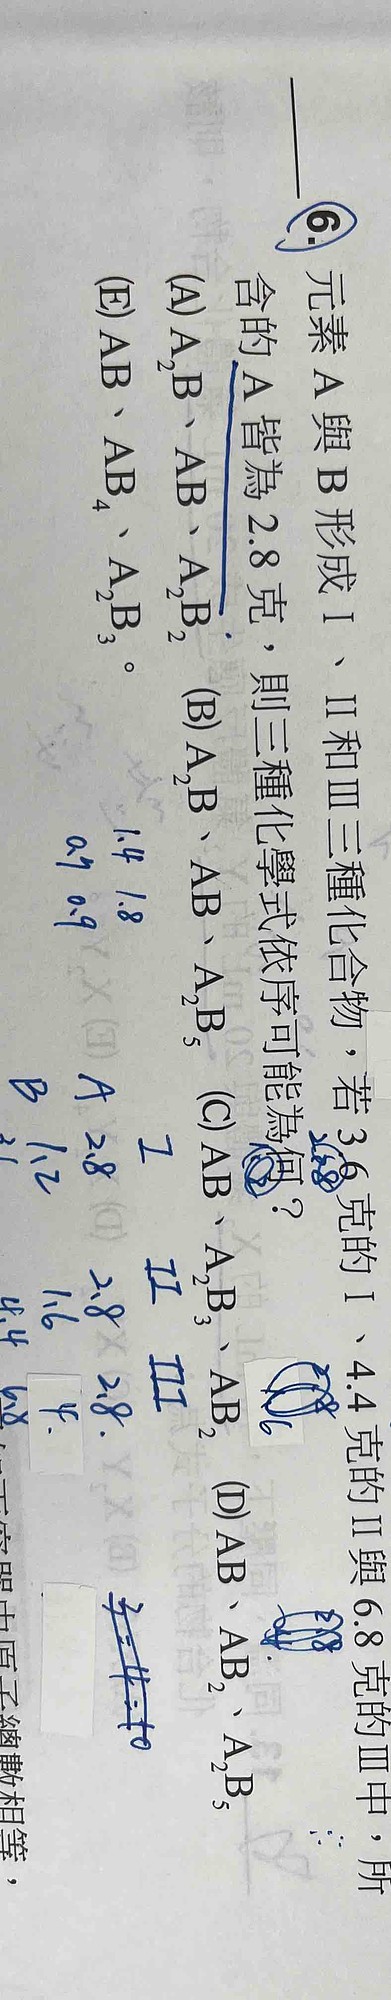 6. 元素 A 與 B 形成 I 、 II 和 III 三種化合物,若 3.6 克的 I 、 4.4 克的 II 與 6.8 克的 III 中,所
含的 A 皆為 2.8 克,則三種化學式依序可能為何?
(A) A₂B 、 AB 、 A₂B₂ (B) A₂B 、 AB 、 A₂B₅ (C) AB 、 A₂B₃ 、 AB₂ (D) AB 、 AB₂ 、 A₂B₅
(E) AB 、 AB₄ 、 A₂B₃ 。
1.4 1.8
0.7 0.9
I II III
A 2.8 2.8 2.8.
B 1.2 1.6 4.
4.4 6.8
原子總數相等,